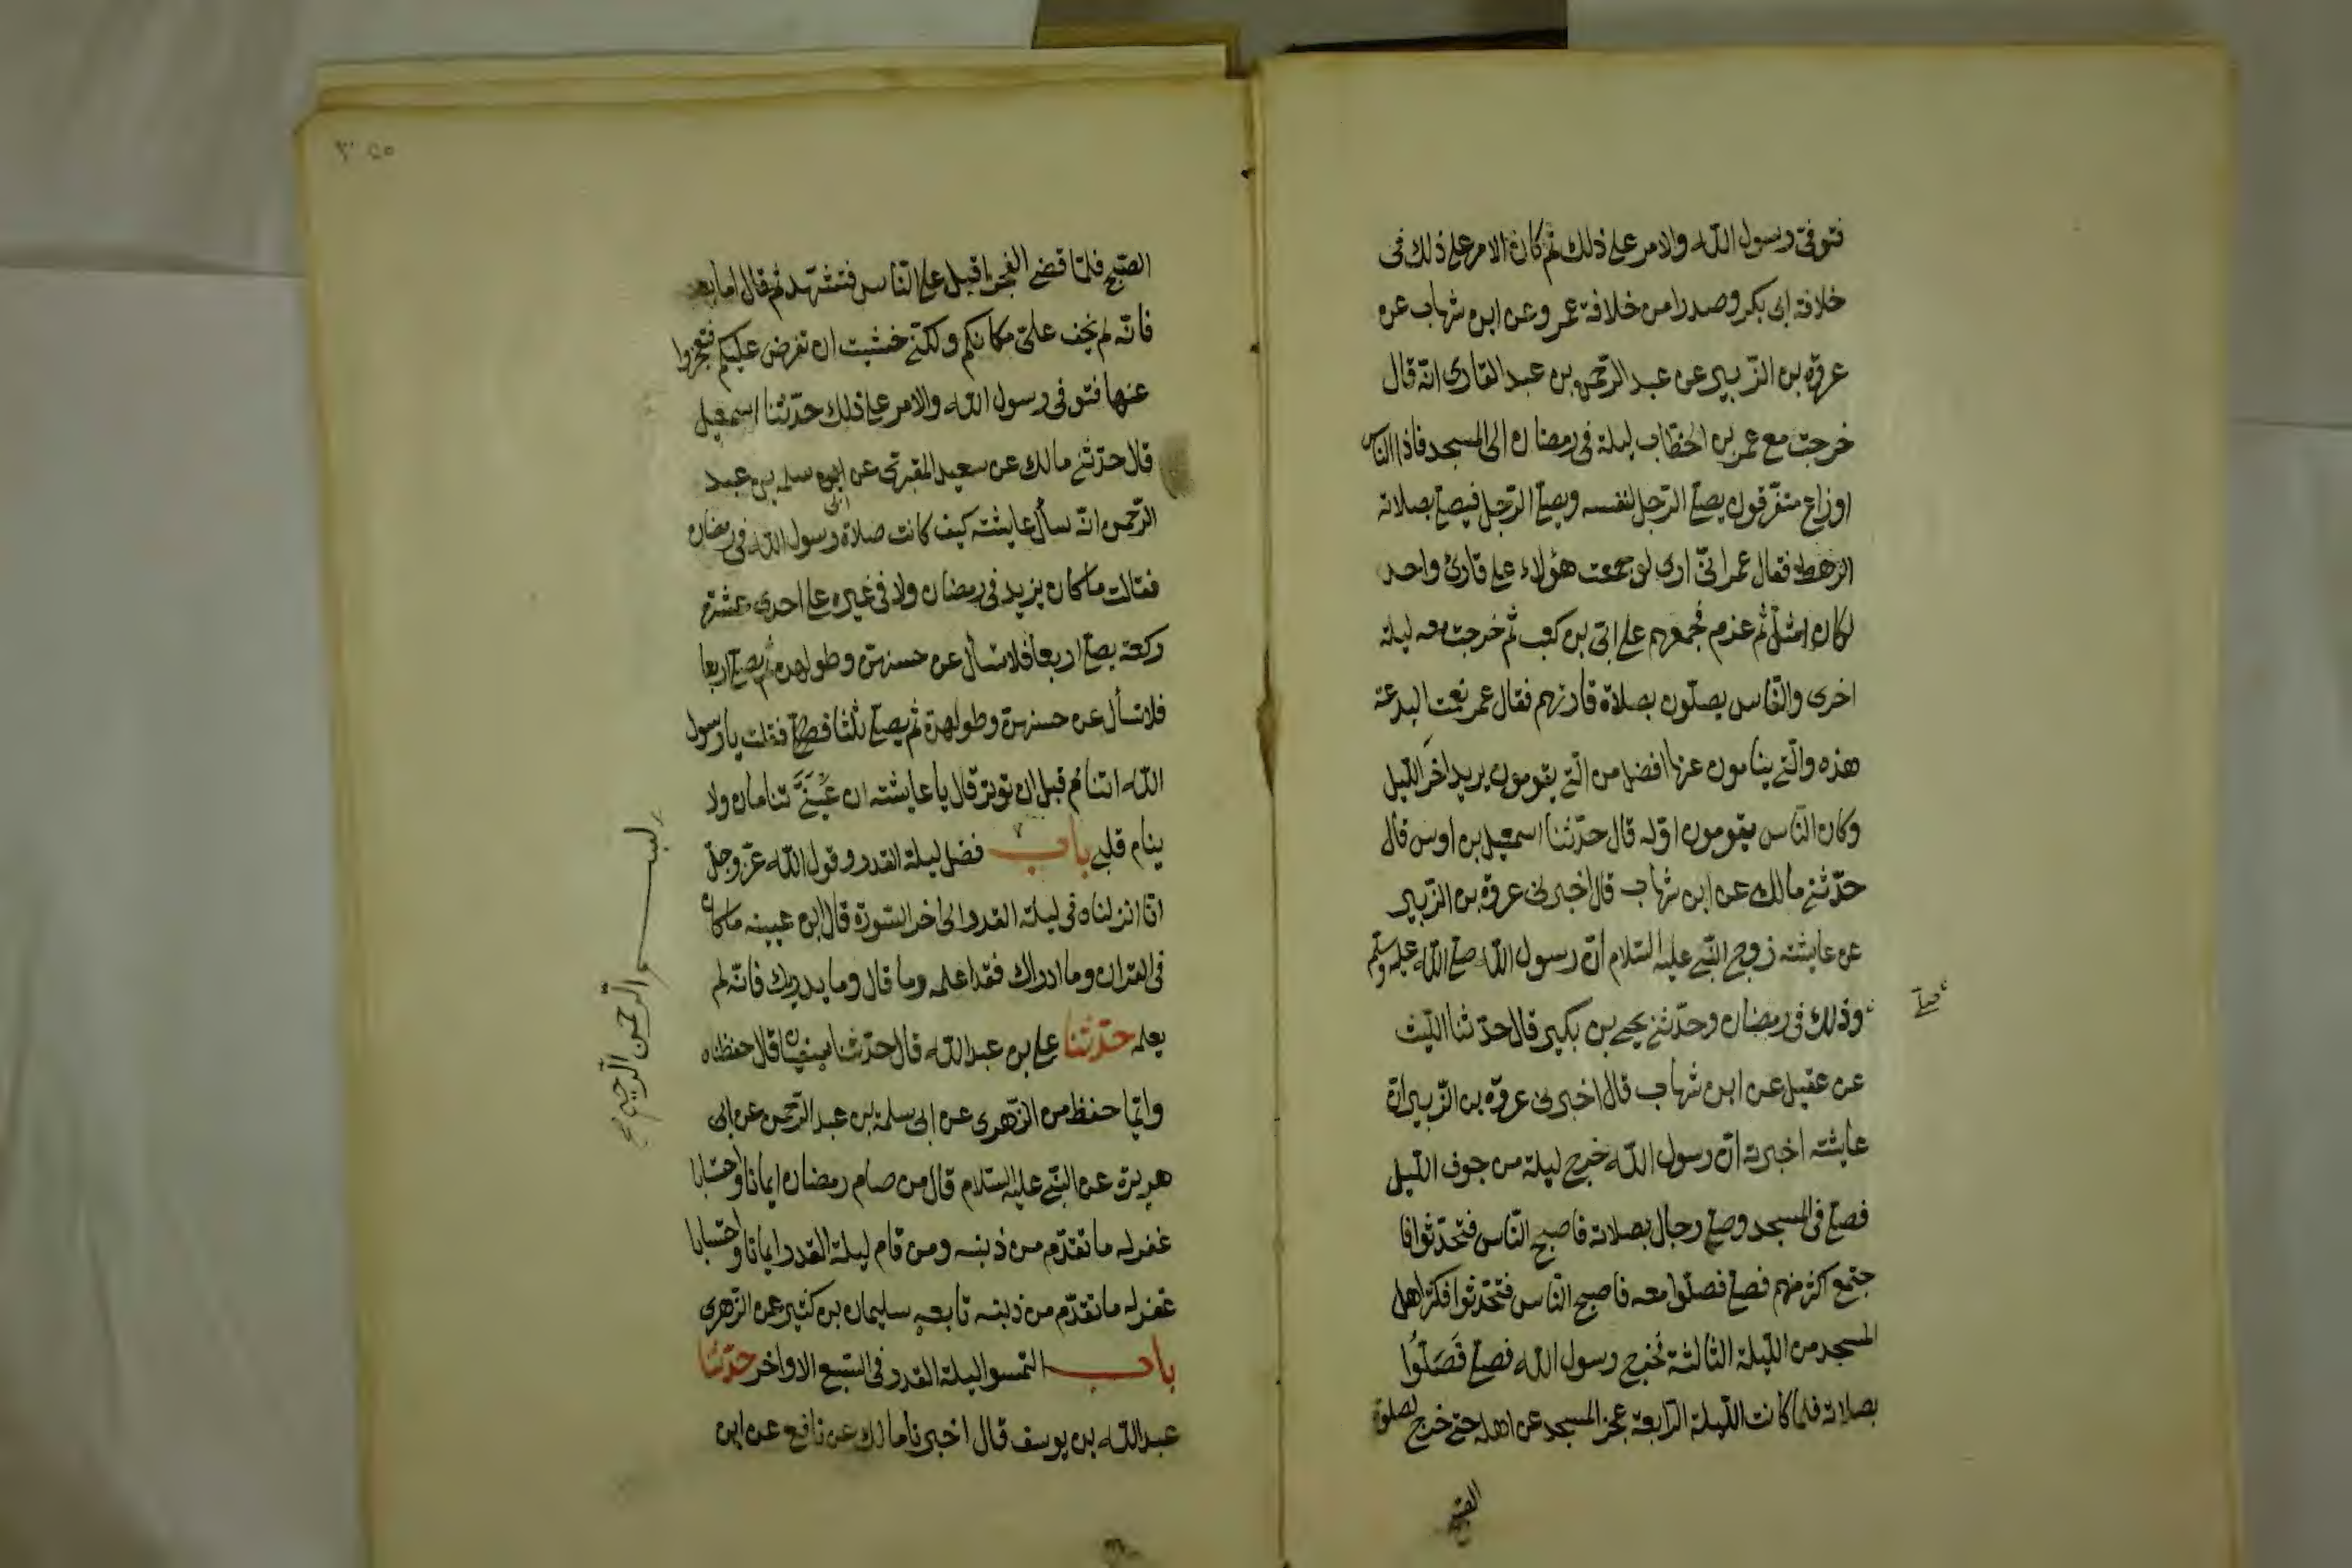 فتوفى رسول الله والامر على ذلك ثم كان الامر على ذلك فى
خلافة ابى بكر وصدرا من خلافة عمر وعن ابن شهاب عن
عروة بن الزّبير عن عبد الرّحمن بن عبد القارى انّه قال
خرجت مع عمر بن الخطّاب ليلة فى رمضان الى المسجد فاذا النّاس
اوزاع متفرّقون يصلّى الرّجل لنفسه ويصلّى الرّجل فيصلّى بصلاته
الرّهط فقال عمر انّى ارى لو جمعت هؤلاء على قارئ واحد
لكان امثل ثم عزم فجمعهم على ابىّ بن كعب ثم خرجت معه ليلة
اخرى والنّاس يصلّون بصلاة قارئهم فقال عمر نعمت البدعة
هذه والّتى ينامون عنها افضل من الّتى يقومون يريد اخرَ اللّيل
وكان النّاس يقومون اوّله قال حدّثنا اسمعيل بن اوس قال
حدّثنى مالك عن ابن شهاب قال اخبرنى عروة بن الزّبير
عن عايشة زوج النّبى عليه السّلام انّ رسول الله صلى الله عليه وسلم
صلّى
وذلك فى رمضان وحدّثنى يحيى بن بكير قال حدّثنا اللّيث
عن عقيل عن ابن شهاب قال اخبرنى عروة بن الزّبير انّ
عايشة اخبرته انّ رسول الله خرج ليلة من جوف اللّيل
فصلّى فى المسجد وصلّى رجال بصلاته فاصبح النّاس فتحدّثوا فا
جتمع اكثر منهم فصلّى فصلّوا معه فاصبح النّاس فتحدّثوا فكثر اهل
المسجد من اللّيلة الثّالثة فخرج رسول الله فصلّى فَصَلّوُا
بصلاته فلمّا كانت اللّيلة الرّابعة عجز المسجد عن اهله حتى خرج لصلوة
الصّبح
الصّبح فلمّا قضى الفجر اقبل على النّاس فتشهّد ثم قال اما بعد
فانّه لم يخف علىّ مكانكم ولكنّى خشيت ان تفرض عليكم فتعجزوا
عنها فتوفى رسول الله والامر على ذلك حدّثنا اسمعيل
قال حدّثنى مالك عن سعيد المقبرىّ عن ابى سلمه بن عبد
الرّحمن انّه سأل عايشة كيف كانت صلاة رسول الله فى رمضان
فقالت ما كان يزيد فى رمضان ولا فى غيره على احدى عشرة
ركعة يصلّى اربعا فلا تسأل عن حسنهنّ وطولهن ثم يصلّى اربعا
فلا تسأل عن حسنهنّ وطولهنّ ثم يصلّى ثلثا فقلت يا رسول
الله اتنامُ قبل ان توتر قال يا عايشة ان عَيْنَىَّ تنامان ولا
ينام قلبى باب فضل ليلة القدر وقول الله عزّ وجلّ
انّا انزلناه فى ليلة القدر الى اخر السّورة قال ابن عيينه ما كان
فى القران وما ادراك فقد اعلمه وما قال وما يدريك فانّه لم
يعلمه حدّثنا على بن عبد الله قال حدّثنا سفيان قال حفظناه
وانّما حفظ من الزّهرى عن ابى سلمة بن عبد الرّحمن عن ابى
هريرة عن النّبى عليه السّلام قال من صام رمضان ايمانا واحتسابا
غفر له ما تقدّم من ذنبه ومن قام ليلة القدر ايمانا واحتسابا
غفر له ما تقدّم من ذنبه تابعه سليمان بن كثير عن الزّهرى
باب التمسوا ليلة القدر فى السّبع الاواخر حدّثنا
عبد الله بن يوسف قال اخبرنا مالك عن نافع عن ابن
بسم الرّحمن الرّحيم